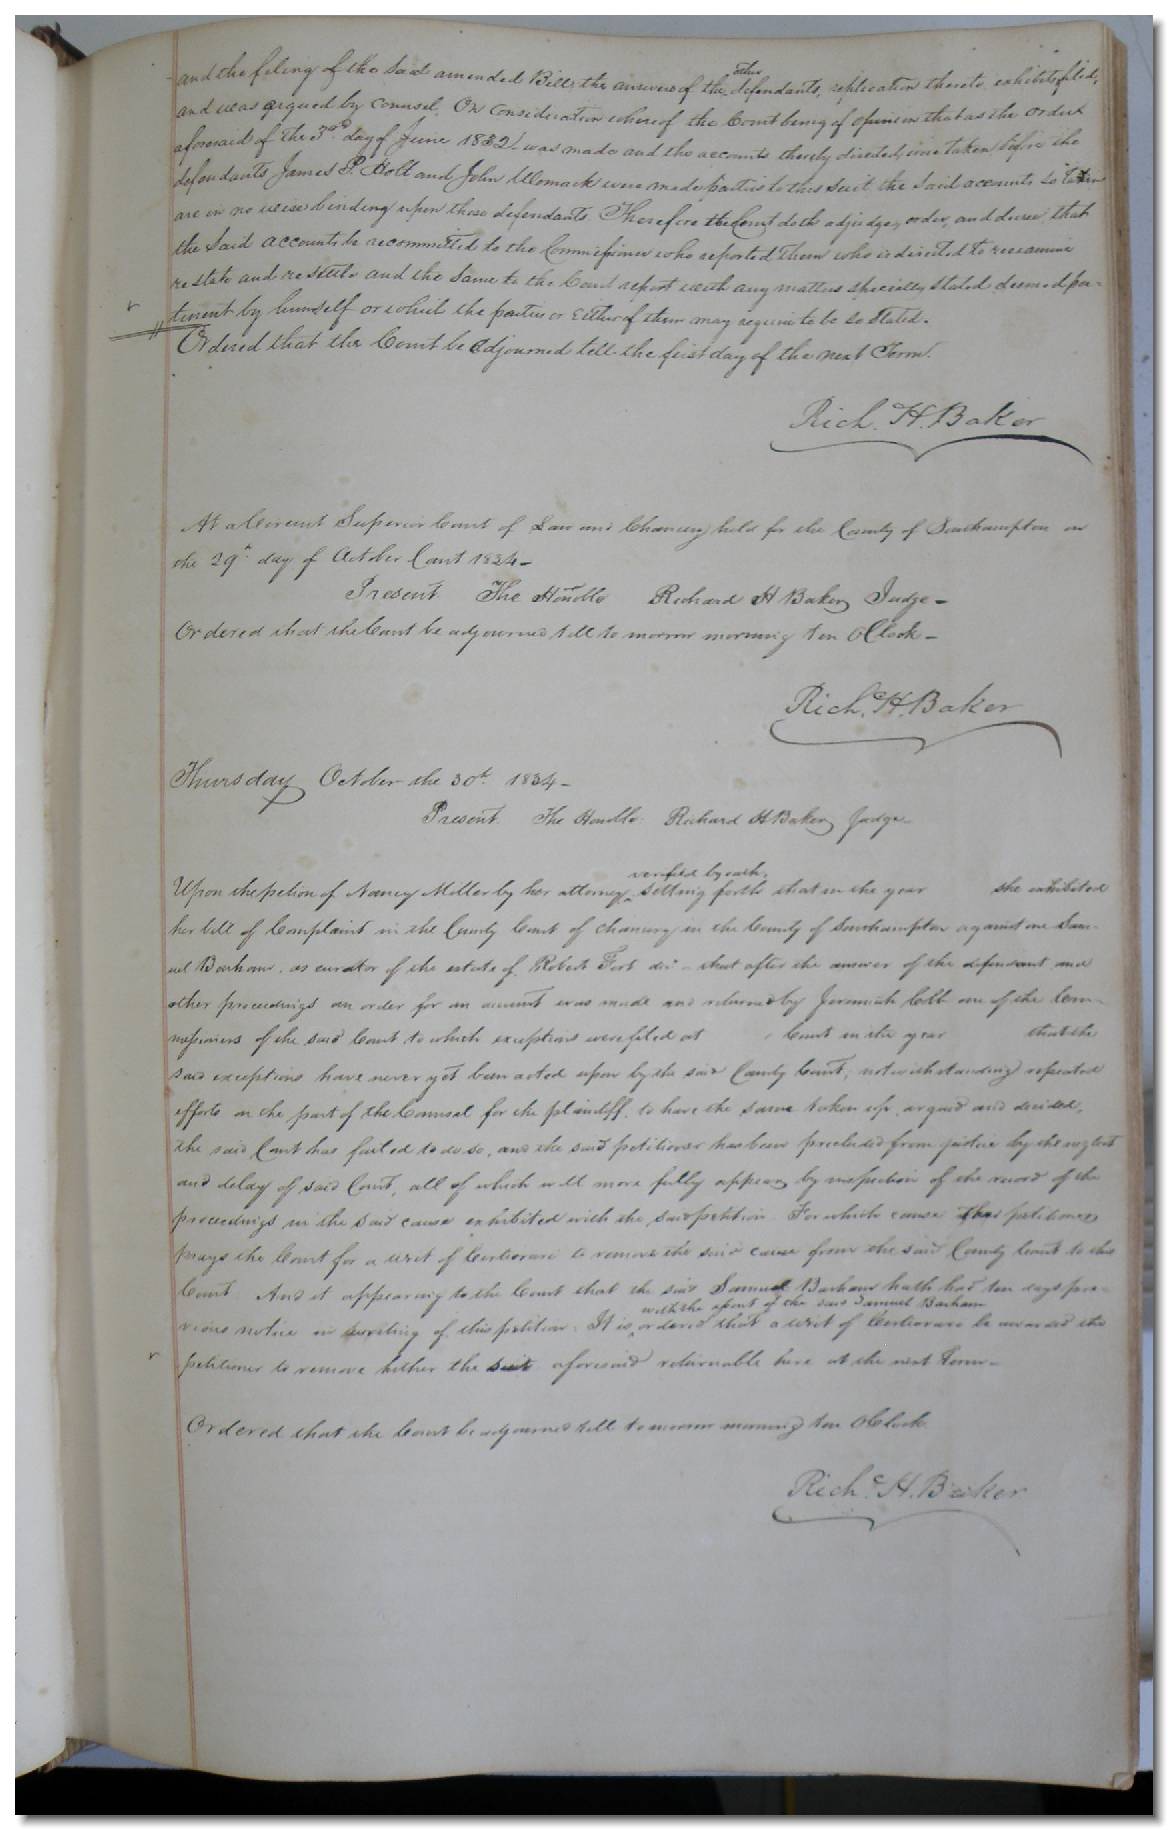 and the filing of the said amended Bill, the answers of the other defendants, replication thereto exhibits filed,
and was argued by counsel. On Consideration whereof the Court being of opinion that as the order
aforesaid of the 3rd day of June 1832 was made and the accounts thereby directed, were taken before the
defendants James P. Holt and John Womack were made parties to this suit, the said accounts so taken
are in no wise binding upon those defendants. Therefore the Court doth adjudge, order, and decree that
the said accounts be recommitted to the Commissioner who reported them who is directed to reexamine
restate and resettle and the same to the Court report with any matters specially stated deemed per-
tinent by himself or which the parties or either of them may require to be so stated.
Ordered that the Court be adjourned till the first day of the next Term.
Rich. H. Baker
At a Circuit Superior Court of Law and Chancery held for the County of Southampton on
the 29th day of October 1834 -
Present The Honble Richard H Baker Judge -
Ordered that the Court be adjourned till to morrow morning ten OClock -
Rich. H. Baker
Thursday October the 30th 1834 -
Present The Honble Richard H Baker Judge -
Upon the petion of Nancy Miller by her attorney verified by oath, setting forth that in the year she exhibited
her bill of Complaint in the County Court of Chancery in the County of Southampton against one Sam-
uel Barham, as curator of the estate of Robert Fort dec - that after the answer of the defendant and
other proceedings an order for an account was made and returned by Jeremiah Cobb one of the Com-
missioners of the said Court to which exceptions were filed at Court in the year that the
said exceptions have never yet been acted upon by the said County Court, notwithstanding repeated
efforts on the part of the Counsel for the plaintiff, to have the same taken up, argued and decided,
the said Court has failed to do so, and the said petitioner has been precluded from justice by the neglect
and delay of said Court, all of which will more fully appear by inspection of the record of the
proceedings in the said cause exhibited with the said petition. For which cause petitioner
prays the Court for a writ of Certiorari to remove the said cause from the said County Court to this
Court. And it appearing to the Court that the said Samuel Barham hath had ten days pre-
vious notice in writing of this petition. It is with the assent of the said Samuel Barham ordered that a writ of Certiorari be awarded the
petitioner to remove hither the suit aforesaid returnable here at the next Term -
Ordered that the Court be adjourned till to morrow morning ten OClock
Rich. H. Baker